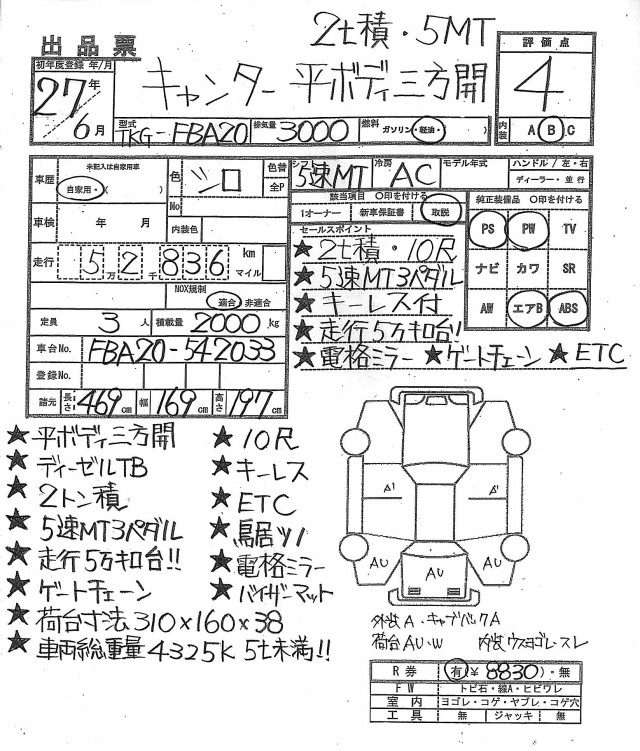 2t積・5MT
出品票
初年度登録 年/月
27年
6月
キャンター 平ボディ三方開
評価点
4
内装 A B C
型式 TKG-FBA20 排気量 3000 燃料 ガソリン・軽油・( )
車歴 未記入は自家用車
自家用・( )
色 シロ
No
色替
全P
車検 年 月 内装色
走行 5万2千836 km マイル
NOX規制
適合 非適合
定員 3人 積載量 2000kg
車台No. FBA20-542033
登録No.
諸元 長さ 469cm 幅 169cm 高さ 197cm
シフト 5速MT 冷房 AC モデル年式 ハンドル/左・右
ディーラー・並行
該当項目 〇印を付ける
1オーナー 新車保証書 取説
純正装備品 〇印を付ける
PS PW TV
ナビ カワ SR
AW エアB ABS
セールスポイント
★2t積・10尺
★5速MT3ペダル
★キーレス付
★走行5万キロ台!
★電格ミラー ★ゲートチェーン ★ETC
★平ボディ三方開
★ディーゼルTB
★2トン積
★5速MT3ペダル
★走行5万キロ台!!
★ゲートチェーン
★荷台寸法310×160×38
★車両総重量4325K 5t未満!!
★10尺
★キーレス
★ETC
★鳥居ツノ
★電格ミラー
★バイザーマット
A1 A1
AU AU AU
外装A・キャブバックA
荷台AU・W 内装ウスヨゴレ・スレ
R券 有(¥8830)・無
FW トビ石・線A・ヒビワレ
室内 ヨゴレ・コゲ・ヤブレ・コゲ穴
工具 無 ジャッキ 無